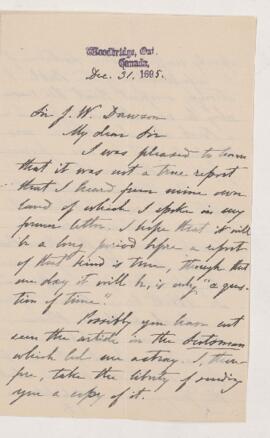 Woodbridge, Ont.
Canada,
Dec. 31. 1895.
Sir J. W. Dawson
My dear Sir
I was pleased to learn
that it was not a true report
that I heard from mine own
land of which I spoke in my
former letter. I hope that it will
be a long period before a report
of that kind is true, though that
one day it will be, is only "a ques-
tion of time".
Possibly you have not
seen the article in the Scotsman
which led me astray. I, there-
fore, take the liberty of sending
you a copy of it.